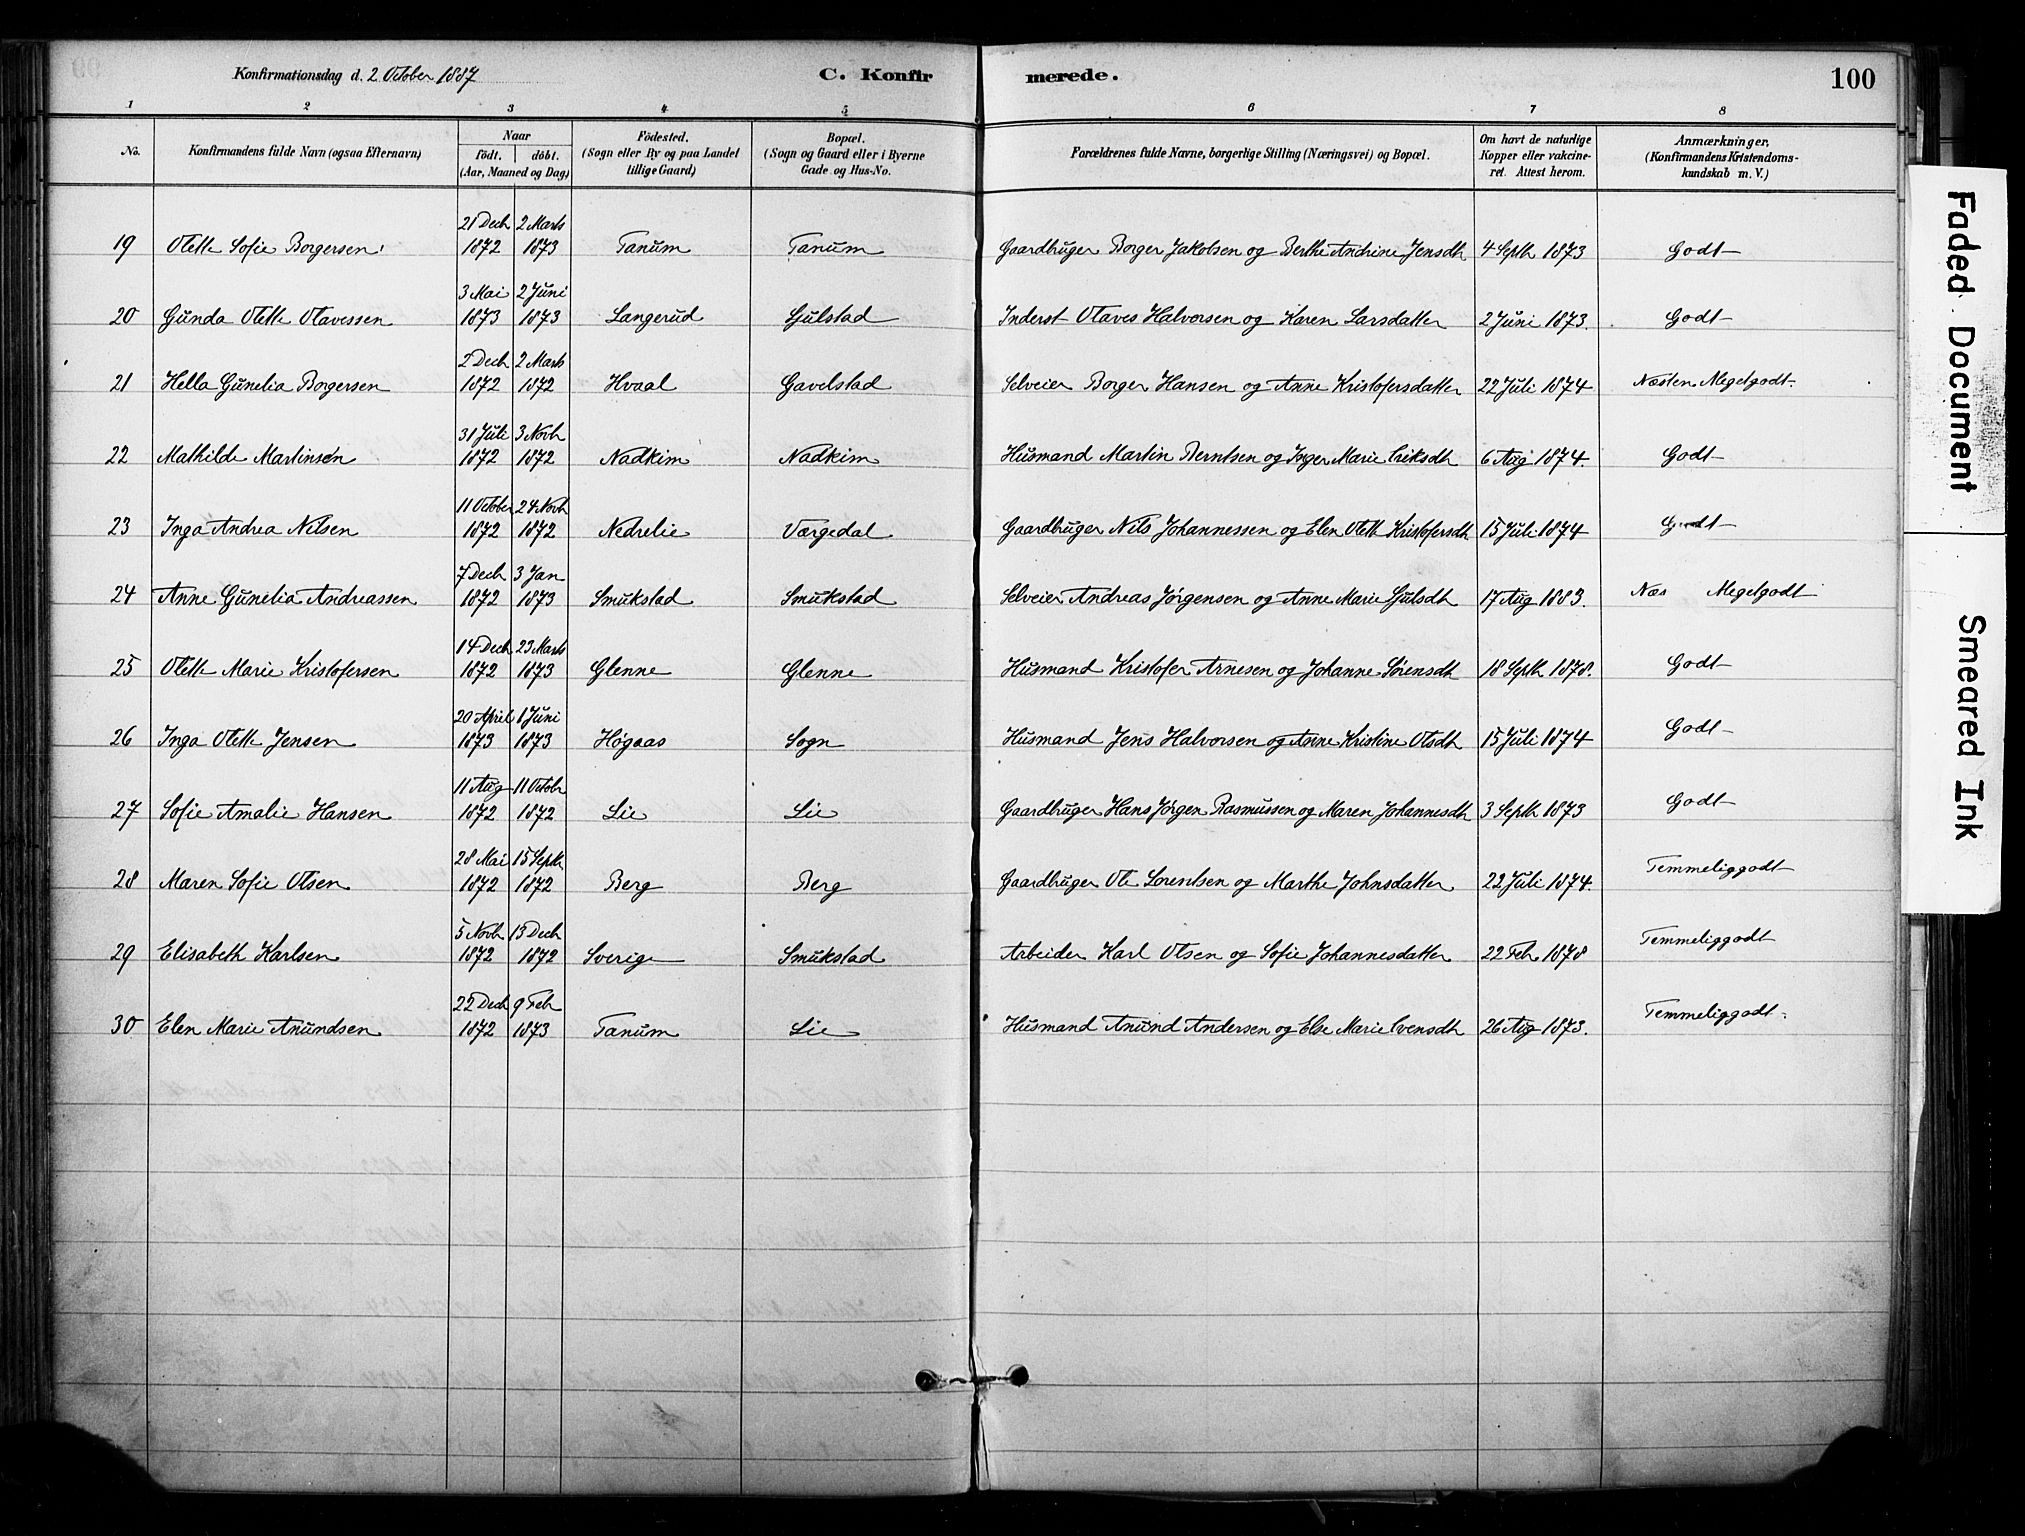 Konfirmationsdag d. 2 October 1887 C. Konfirmerede. 100
1 2 3 4 5 6 7 8
No. Konfirmandens fulde Navn (ogsaa Efternavn) Naar födt. döbt. (Aar, Maaned og Dag) Födested. (Sogn eller By og paa Landet tillige Gaard) Bopæl. (Sogn og Gaard eller i Byerne Gade og Hus-No. Forældrenes fulde Navne, borgerlige Stilling (Næringsvei) og Bopæl. Om havt de naturlige Kopper eller vakcineret. Attest herom. Anmærkninger, (Konfirmandens Kristendomskundskab m. V.)
21 Decb 2 Marts
19 Olette Sofie Borgersen 1872 1873 Tanum Tanum Gaardbruger Borger Jakobsen og Berthe Andrine Jensdtr 4 Septb 1873 Godt
3 Mai 2 Juni
20 Gunda Olette Olavessen 1873 1873 Langerud Gjulstad Inderst Olaves Halvorsen og Karen Larsdatter 2 Juni 1873. Godt
2 Decb 2 Marts
21 Hella Gunelia Borgersen 1872 1872 Hvaal Gavelstad Selveier Borger Hansen og Anne Kristofersdatter 22 Juli 1874 Næsten Megetgodt.
31 Juli 3 Novb
22 Mathilde Martinsen 1872 1872 Nadkim Nadkim Husmand Martin Berntsen og Inger Marie Eriksdtr 6 Aug 1874. Godt
11 October 24 Novb
23 Inga Andrea Nilsen 1872 1872 Nedrelie Værgedal Gaardbruger Nils Johannessen og Elen Olette Kristofersdtr 15 Juli 1874 Godt
7 Decb 3 Jan
24 Anne Gunelia Andreassen 1872 1873 Smukstad Smukstad Selveier Andreas Jörgensen og Anne Marie Gjulsdtr 17 Aug 1883. Næs Megetgodt
14 Decb 23 Marts
25 Olette Marie Kristofersen 1872 1873 Glenne Glenne Husmand Kristofer Arnesen og Johanne Sörensdtr 18 Septb 1878. Godt
20 April 1 Juni
26 Inga Olette Jensen 1873 1873 Högaas Sogn Husmand Jens Halvorsen og Anne Kristine Olsdtr 15 Juli 1874 Godt
11 Aug 11 Octob
27 Sofie Amalie Hansen 1872 1872 Lie Lie Gaardbruger Hans Jörgen Rasmussen og Maren Johannesdtr 3 Septb 1873 Godt
28 Mai 15 Septb
28 Maren Sofie Olsen 1872 1872 Berg Berg Gaardbruger Ole Lorentsen og Marthe Johnsdatter 22 Juli 1874. Temmeliggodt
5 Novb 13 Decb
29 Elisabeth Karlsen 1872 1872 Sverige Smukstad Arbeider Karl Olsen og Sofie Johannesdatter 22 Feb. 1878 Temmeliggodt
22 Decb 9 Feb
30 Elen Marie Anundsen 1872 1873 Tanum Lie Husmand Anund Andersen og Else Marie Evensdtr 26 Aug 1873. Temmeliggodt.
Faded Document
Smeared Ink